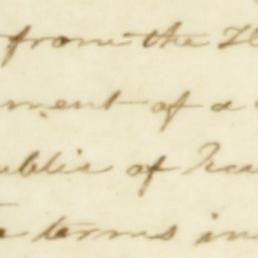 from the
ment of a
ublic of
terms in